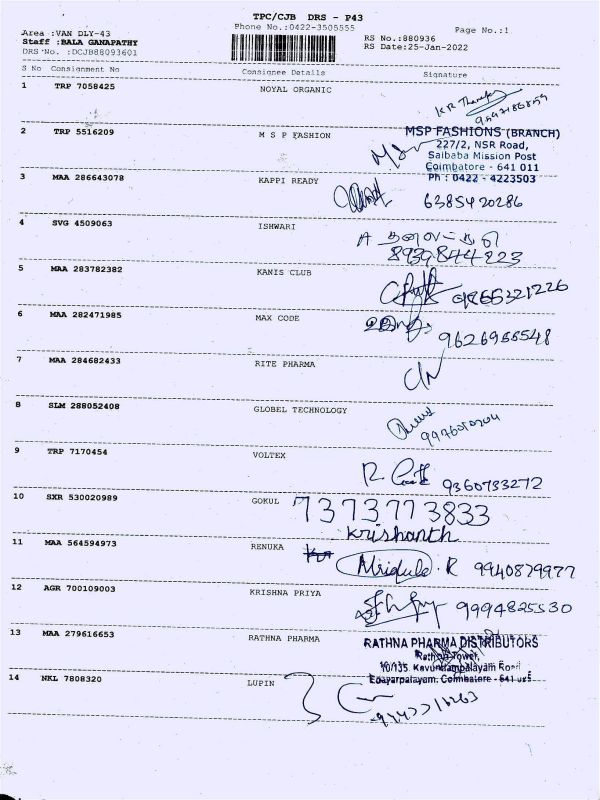 TPC/CJB DRS - P43
Phone No.:0422-3505555
Page No.:1
Area :VAN DLY-43
Staff :BALA GANAPATHY
DRS No. :DCJB88093601
RS No.:880936
RS Date:25-Jan-2022
S No Consignment No Consignee Details Signature
1 TRP 7058425 NOYAL ORGANIC
2 TRP 5516209 M S P FASHION
MSP FASHIONS (BRANCH)
227/2, NSR Road,
Saibaba Mission Post
Coimbatore - 641 011
Ph : 0422 - 4223503
3 MAA 286643078 KAPPI READY 6385420286
4 SVG 4509063 ISHWARI
8939844223
5 MAA 283782382 KANIS CLUB
6 MAA 282471985 MAX CODE
9626956548
7 MAA 284682433 RITE PHARMA
8 SLM 288052408 GLOBEL TECHNOLOGY
9 TRP 7170454 VOLTEX
9360733272
10 SXR 530020989 GOKUL 7373773833
Krishanth
11 MAA 564594973 RENUKA
Mridula. R 9940879977
12 AGR 700109003 KRISHNA PRIYA 9994825530
13 MAA 279616653 RATHNA PHARMA
RATHNA PHARMA DISTRIBUTORS
Rathna Tower,
10/135, Kavundampalayam Road
Edayarpalayam, Coimbatore - 641 025
14 NKL 7808320 LUPIN